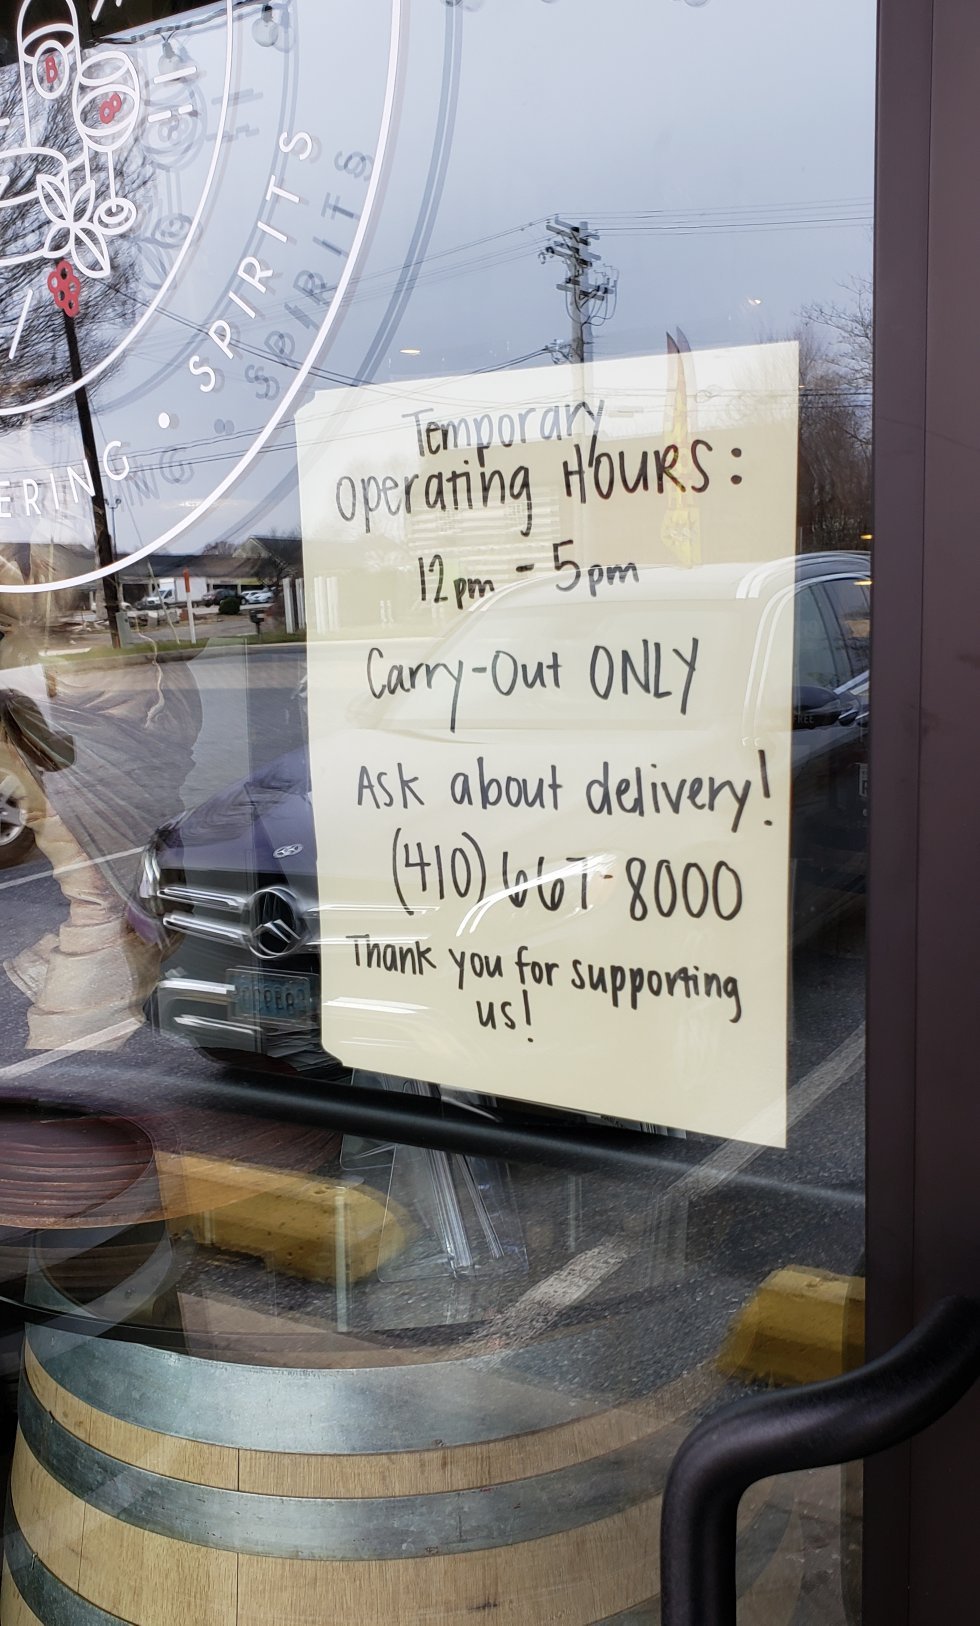 SPIRITS
ERING
Temporary
operating HOURS:
12pm - 5pm
Carry-Out ONLY
Ask about delivery!
(410) 667-8000
Thank you for supporting
us!